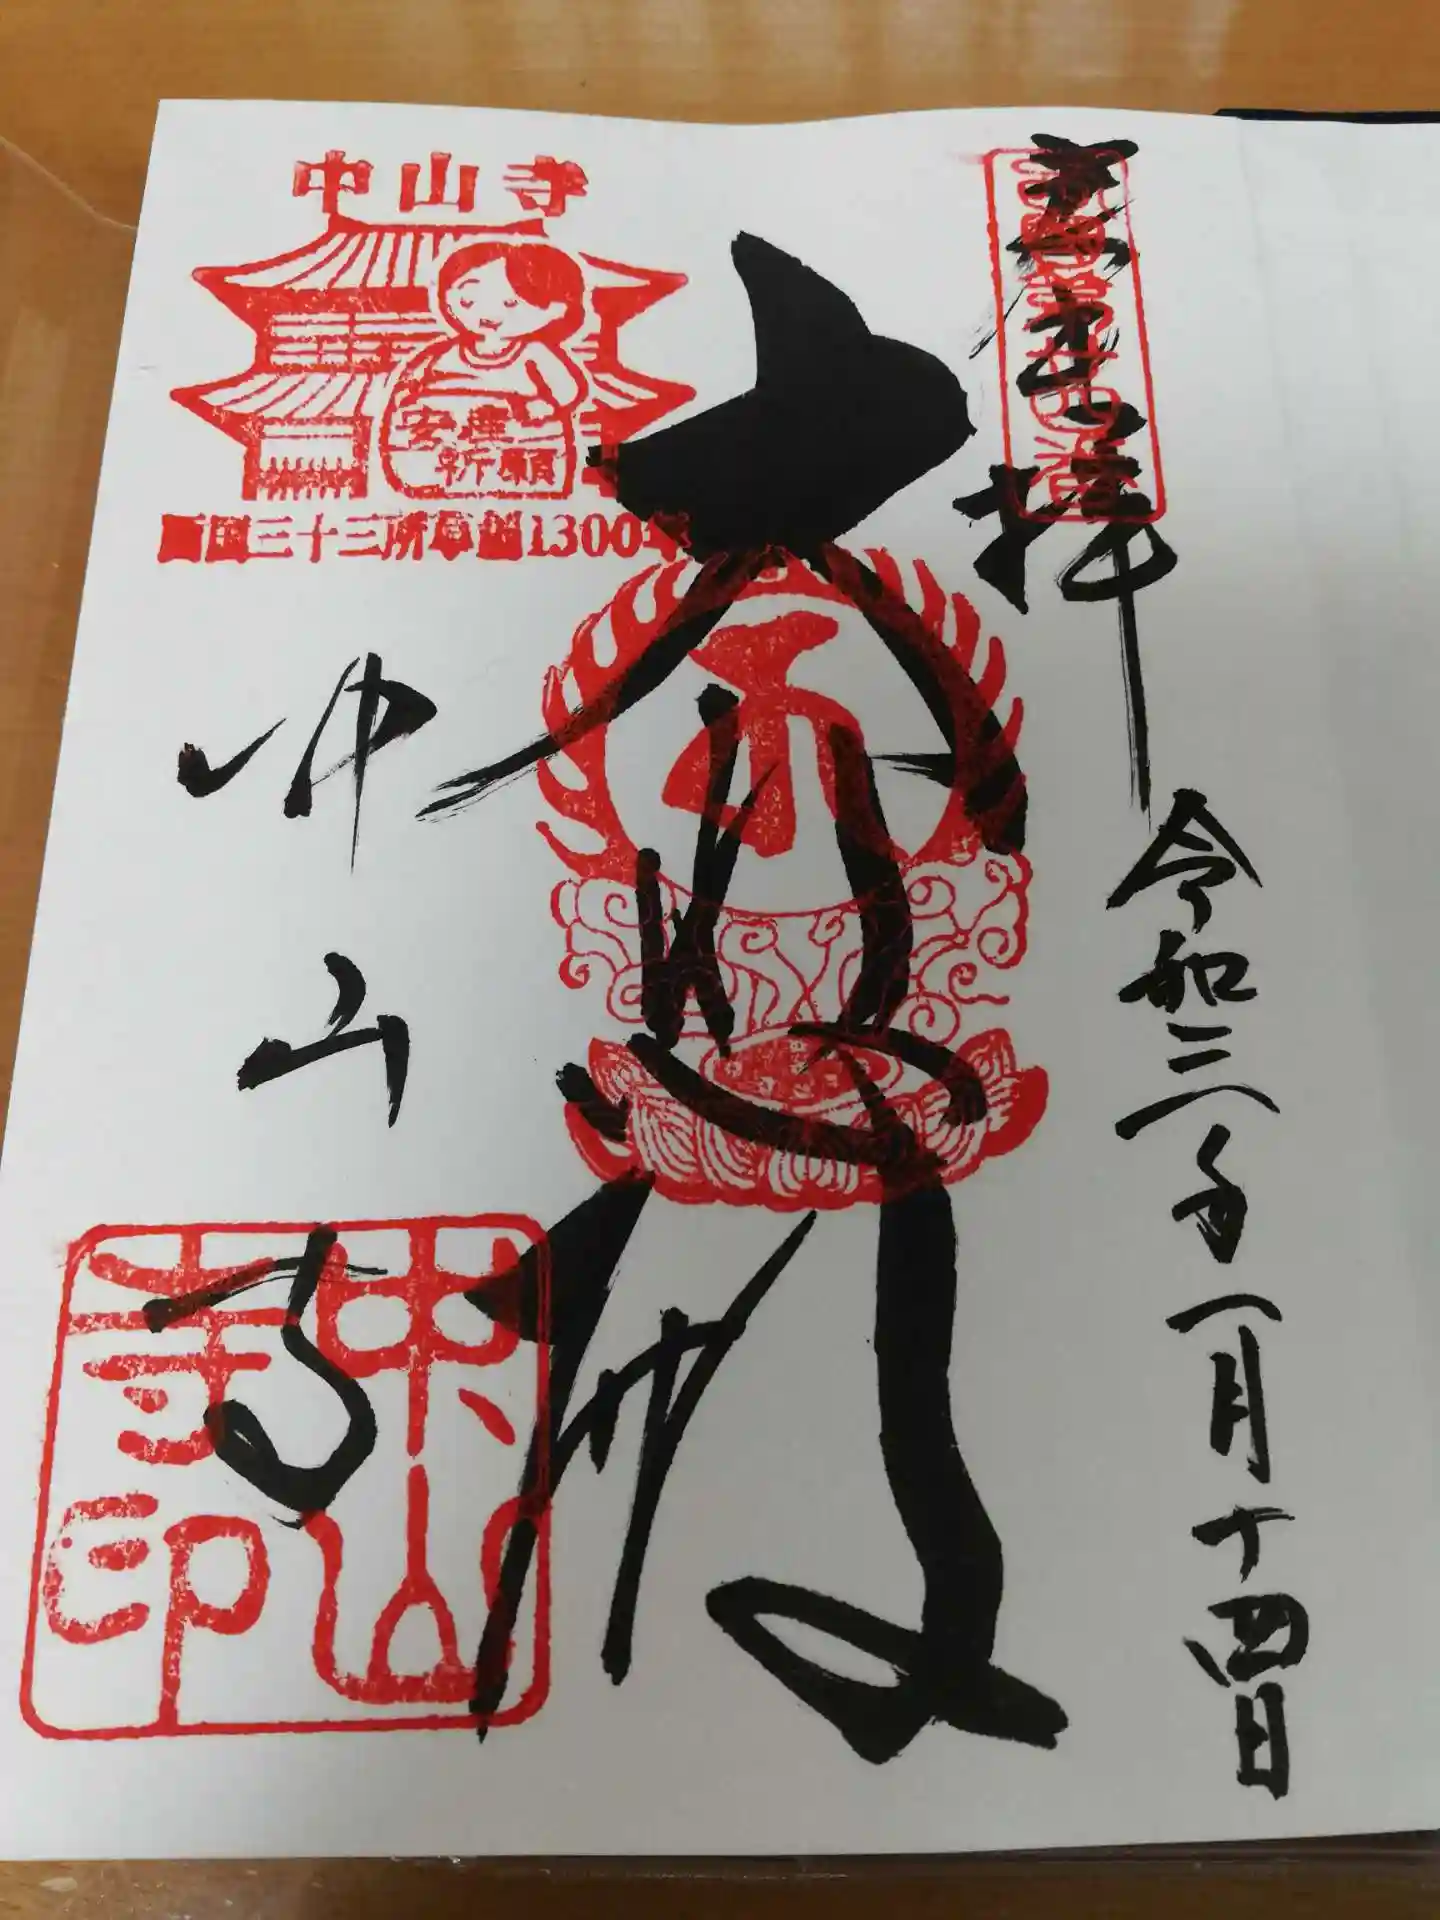 拝
令和三年一月十四日
大悲殿
中山寺
中山寺
安産
祈願
西国三十三所草創1300年
中山寺印